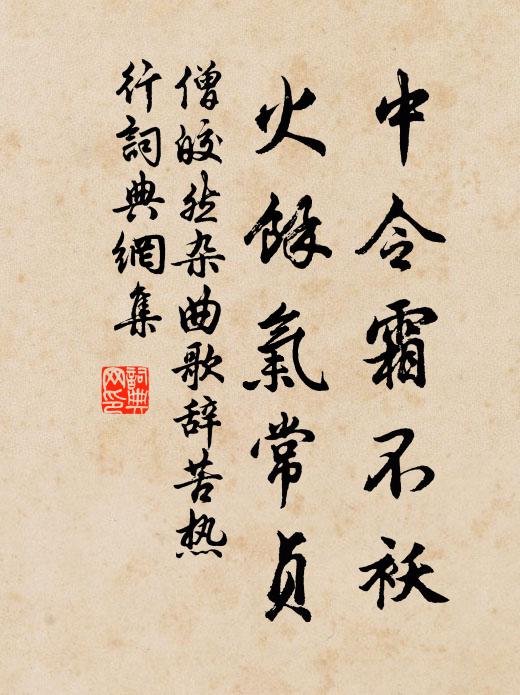 中令霜不袄
火餘氣常貞
僧皎然杂曲歌辞苦热
行詞典網集
詞典网印